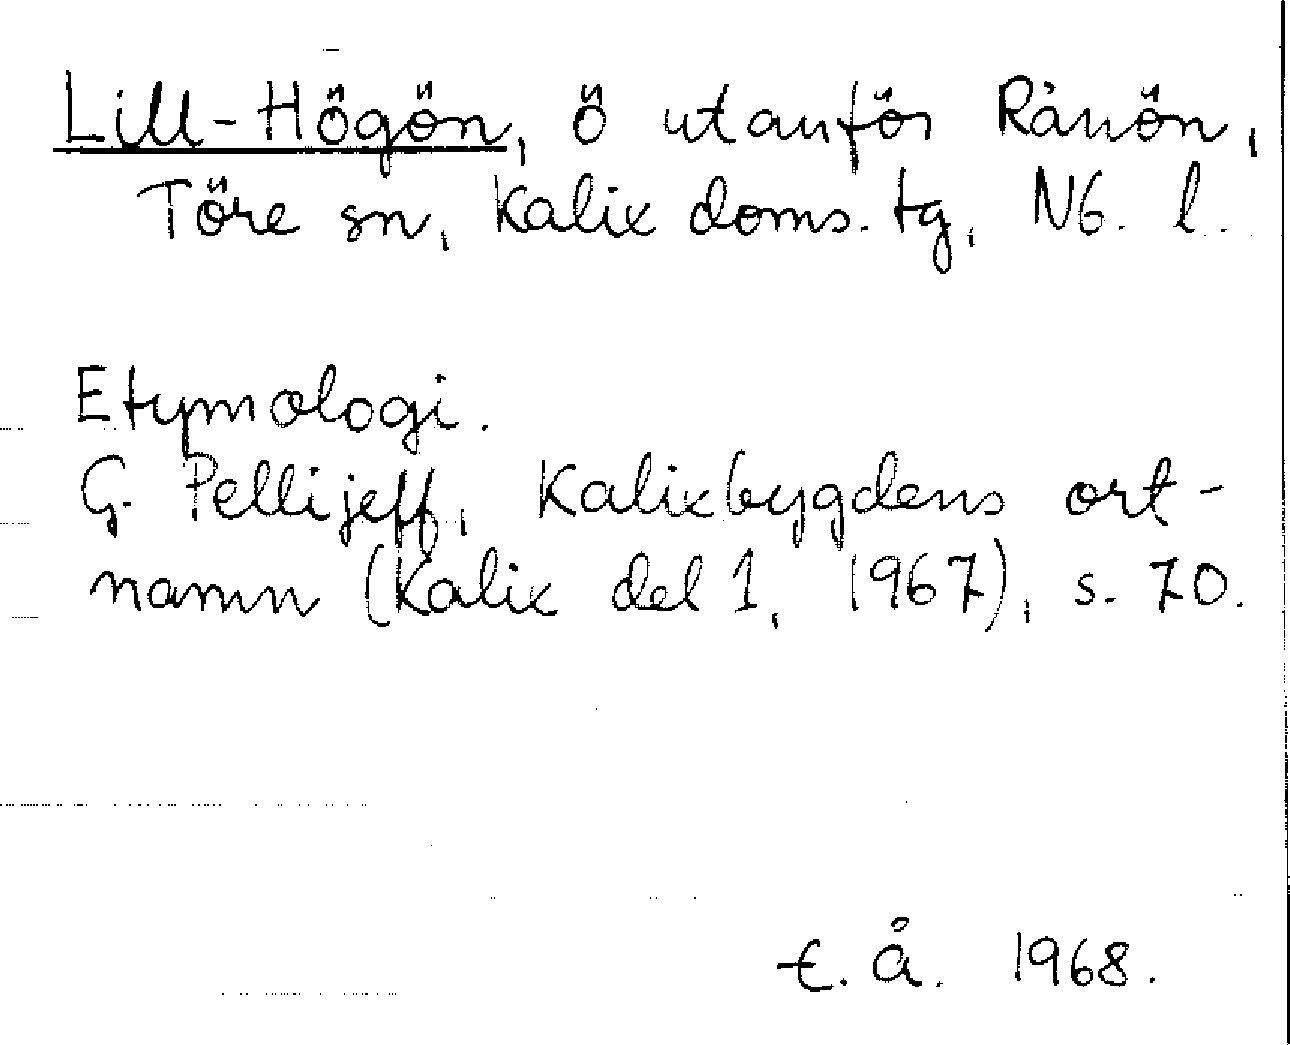 Lill-Högön, ö utanför Rånön,
Töre sn, Kalix doms.tg, Nb. l.
Etymologi.
G. Pellijeff, Kalixbygdens ort-
namn (Kalix del 1, 1967), s. 70.
E. Å. 1968.